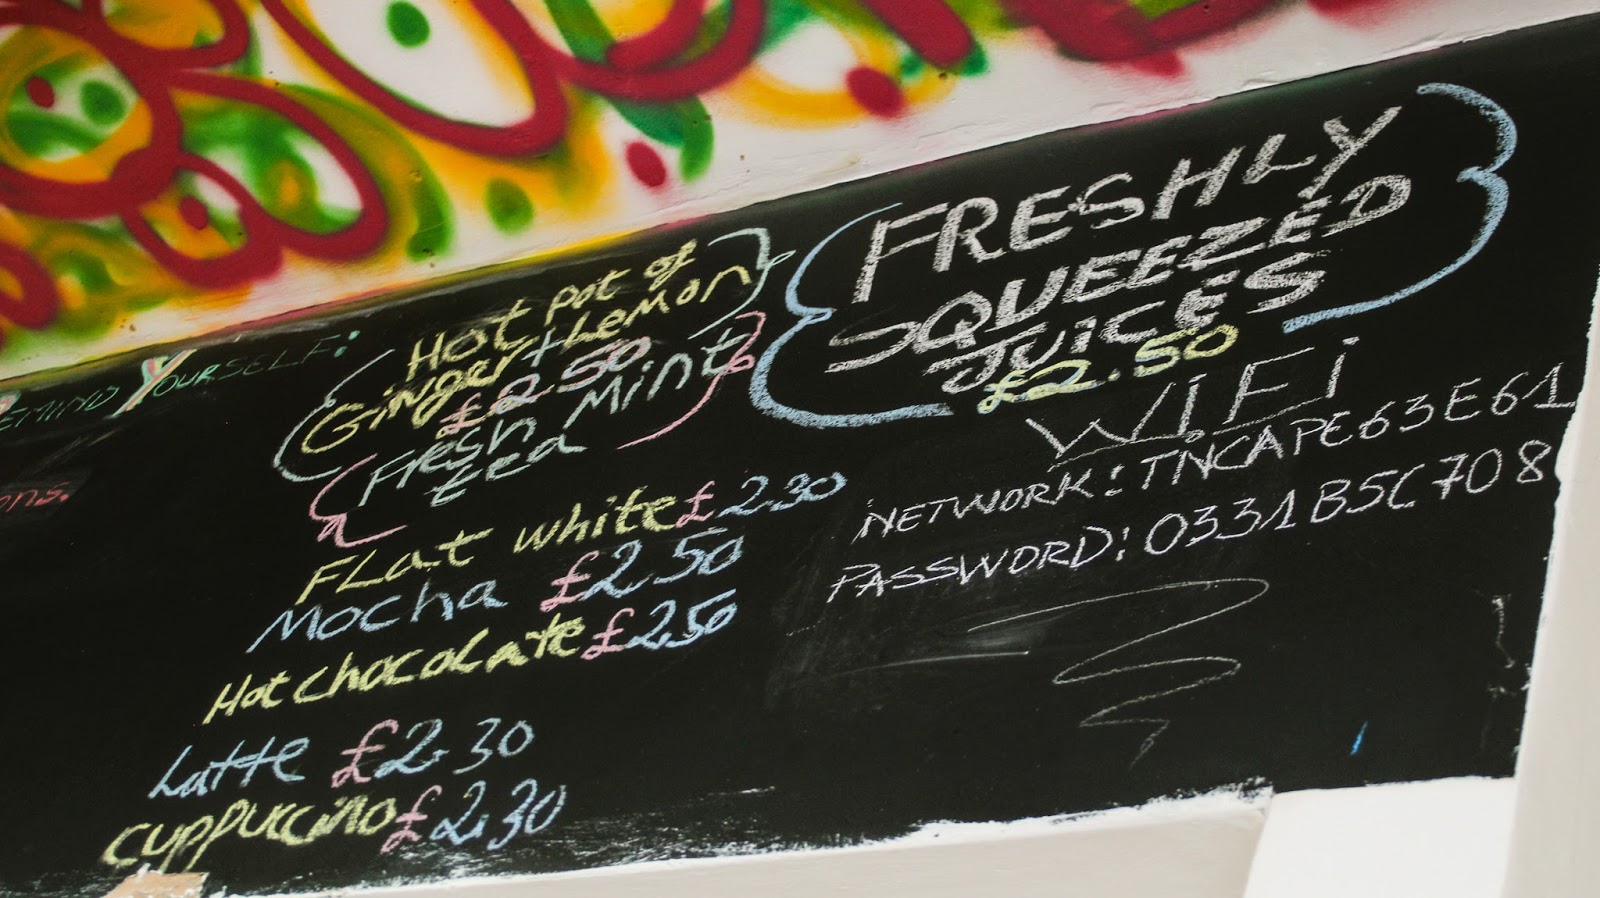 YOURSELF:
Hot pot of
Ginger + Lemon
£2.50
Fresh Mint
tea
FLat white £2.30
Mocha £2.50
Hot chocolate £2.50
Latte £2.30
cuppuccino £2.30
FRESHLY
SQUEEZED
JUiCES
£2.50
WiFi
NETWORK: TNCAPE63E61
PASSWORD: 0331B5C708